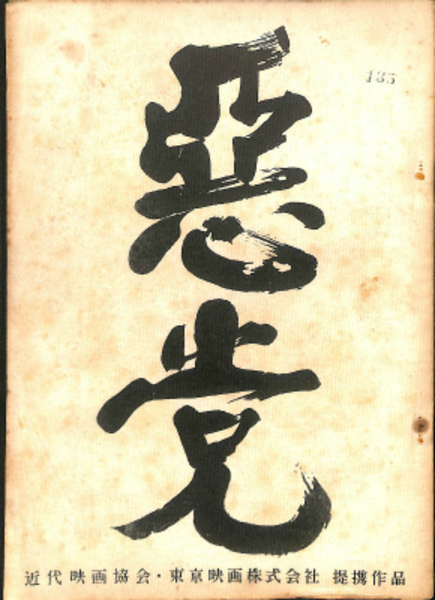 135
惡党
近代映画協会・東京映画株式会社 提携作品